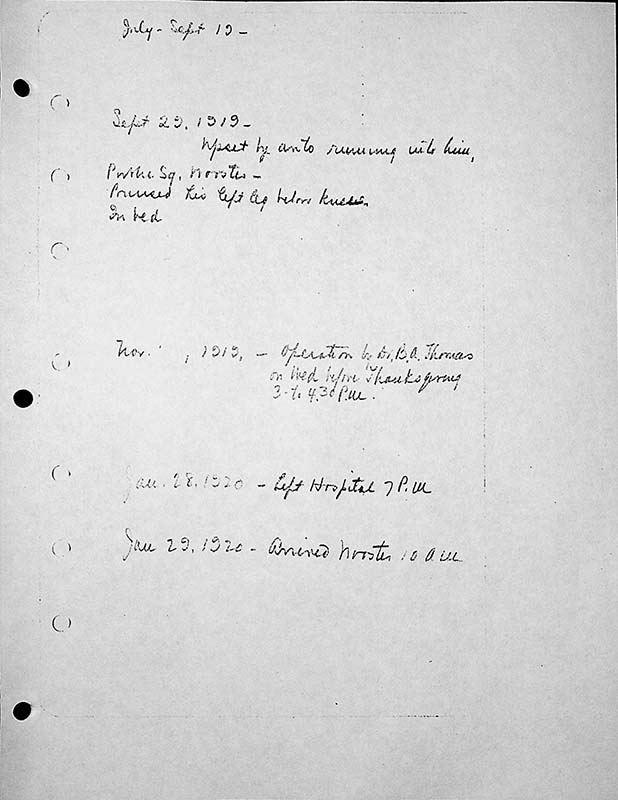 July - Sept 19 -
Sept 29, 1919 -
Upset by auto running into him,
Public Sq. Wooster -
Bruised his left leg below knee.
In bed
Nov. , 1919, - Operation by Dr. B.A. Thomas
on Wed before Thanksgiving
3 - to 4.30 P.M.
Jan. 28, 1920 - Left Hospital 7 P.M
Jan 29, 1920 - Arrived Wooster 10 A M